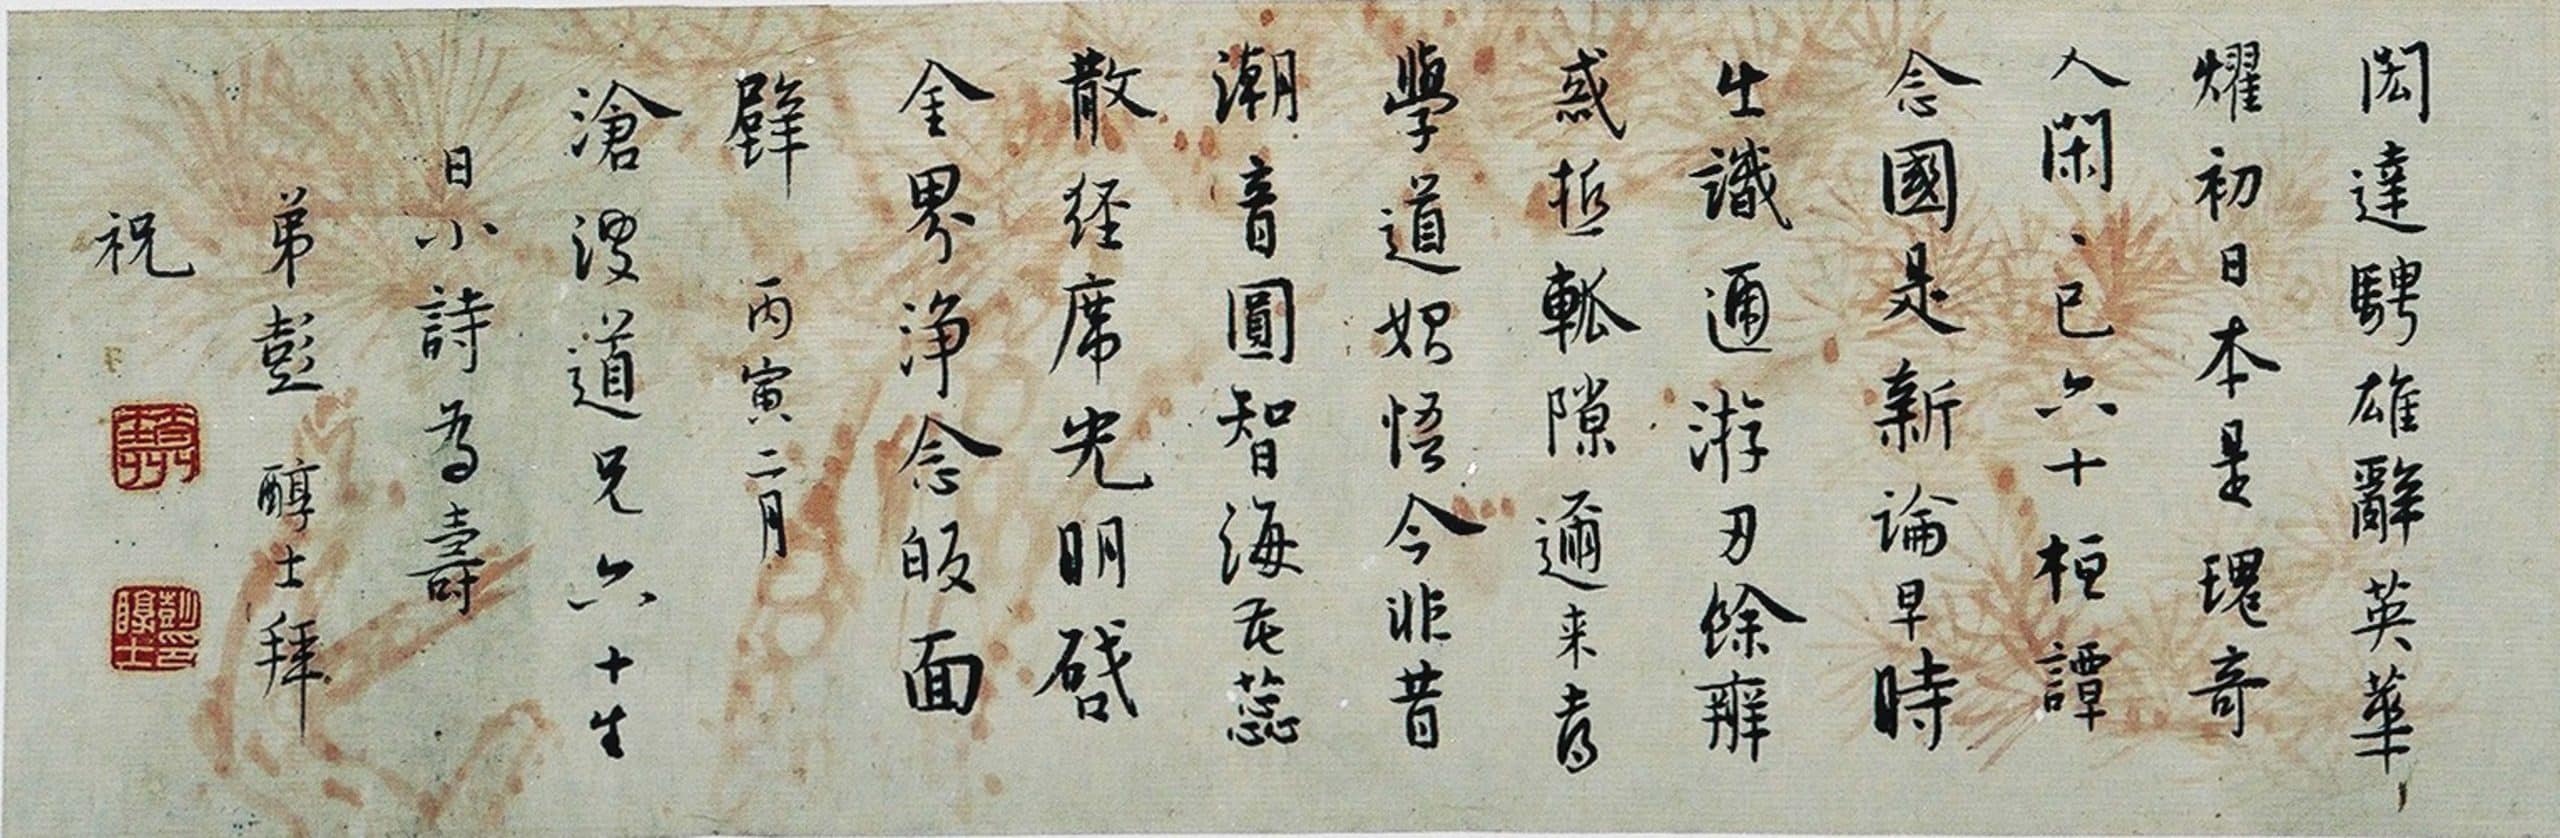 閎達騁雄辭英華
燿初日本是瑰奇
人閑、已六十桓譚
念國是新論早時
出識邇游刃餘辨
惑抵軱隙邇来耆
學道始悟今非昔
潮音圓智海花蕊
散経席光明啟
金界淨念皈面
壁 丙寅二月
滄波道兄六十生
日小詩為壽
弟彭醇士拜
祝
彭印醇士